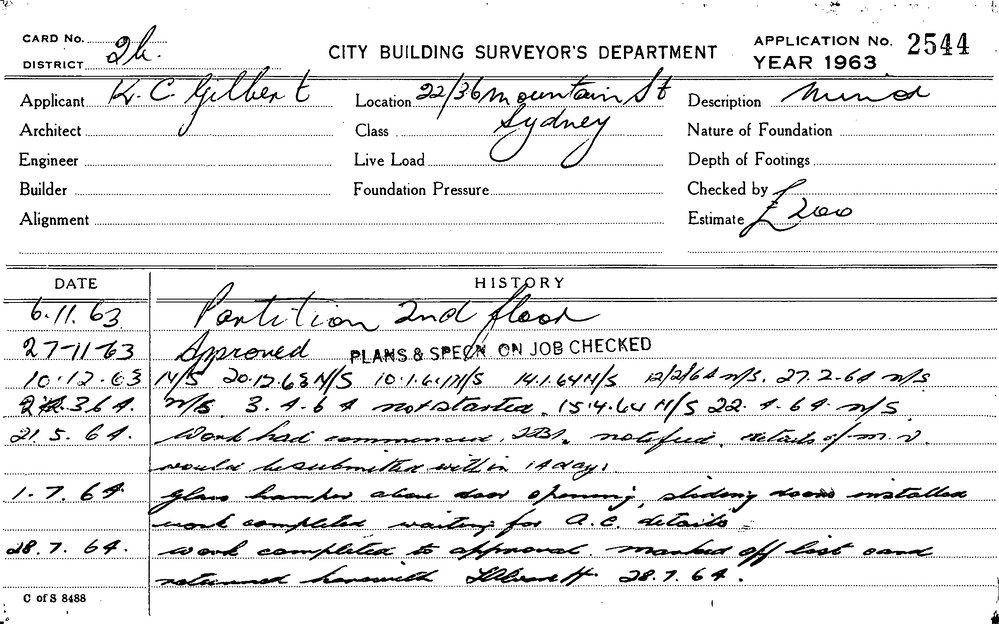 CARD No. 2h. CITY BUILDING SURVEYOR'S DEPARTMENT APPLICATION No. 2544
DISTRICT YEAR 1963
Applicant K. C. Gilbert Location 22/36 Mountain St Description Minor
Architect Class Sydney Nature of Foundation
Engineer Live Load Depth of Footings
Builder Foundation Pressure Checked by
Alignment Estimate £200
DATE HISTORY
6.11.63 Partition 2nd floor
27-11-63 Approved PLANS & SPECN. ON JOB CHECKED
10.12.63 N/S 20.12.63 N/S 10.1.64 N/S 14.1.64 N/S 12/2/64 N/S. 27.2.64 N/S
3.64. N/S. 3.4.64 not started. 15.4.64 N/S 22.4.64. N/S
21.5.64. Work had commenced. notified. details of M.V.
would be submitted within 14 days
1.7.64 glass hamper above door opening, sliding doors installed
work completed waiting for A.C. details
28.7.64. work completed to approval. marked off list card
returned herewith 28.7.64.
C of S 8488